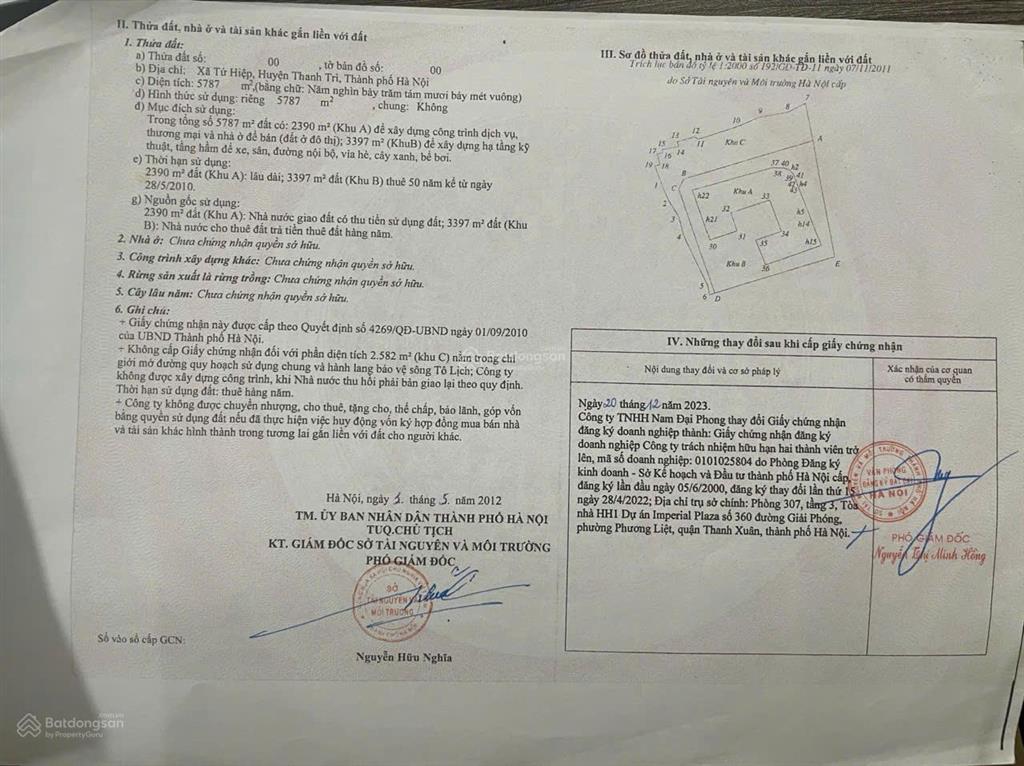 II. Thửa đất, nhà ở và tài sản khác gắn liền với đất
1. Thửa đất:
a) Thửa đất số: 00 , tờ bản đồ số: 00
b) Địa chỉ: Xã Tứ Hiệp, Huyện Thanh Trì, Thành phố Hà Nội
c) Diện tích: 5787 m²,(bằng chữ: Năm nghìn bảy trăm tám mươi bảy mét vuông)
d) Hình thức sử dụng: riêng 5787 m² , chung: Không
đ) Mục đích sử dụng:
Trong tổng số 5787 m² đất có: 2390 m² (Khu A) để xây dựng công trình dịch vụ,
thương mại và nhà ở để bán (đất ở đô thị); 3397 m² (KhuB) để xây dựng hạ tầng kỹ
thuật, tầng hầm để xe, sân, đường nội bộ, vỉa hè, cây xanh, bể bơi.
e) Thời hạn sử dụng:
2390 m² đất (Khu A): lâu dài; 3397 m² đất (Khu B) thuê 50 năm kể từ ngày
28/5/2010.
g) Nguồn gốc sử dụng:
2390 m² đất (Khu A): Nhà nước giao đất có thu tiền sử dụng đất; 3397 m² đất (Khu
B): Nhà nước cho thuê đất trả tiền thuê đất hàng năm.
2. Nhà ở: Chưa chứng nhận quyền sở hữu.
3. Công trình xây dựng khác: Chưa chứng nhận quyền sở hữu.
4. Rừng sản xuất là rừng trồng: Chưa chứng nhận quyền sở hữu.
5. Cây lâu năm: Chưa chứng nhận quyền sở hữu.
6. Ghi chú:
+ Giấy chứng nhận này được cấp theo Quyết định số 4269/QĐ-UBND ngày 01/09/2010
của UBND Thành phố Hà Nội.
+ Không cấp Giấy chứng nhận đối với phần diện tích 2.582 m² (khu C) nằm trong chỉ
giới mở đường quy hoạch sử dụng chung và hành lang bảo vệ sông Tô Lịch; Công ty
không được xây dựng công trình, khi Nhà nước thu hồi phải bàn giao lại theo quy định.
Thời hạn sử dụng đất: thuê hàng năm.
+ Công ty không được chuyển nhượng, cho thuê, tặng cho, thế chấp, bảo lãnh, góp vốn
bằng quyền sử dụng đất nếu đã thực hiện việc huy động vốn ký hợp đồng mua bán nhà
và tài sản khác hình thành trong tương lai gắn liền với đất cho người khác.
Hà Nội, ngày 3. tháng 5. năm 2012
TM. ỦY BAN NHÂN DÂN THÀNH PHỐ HÀ NỘI
TUQ.CHỦ TỊCH
KT. GIÁM ĐỐC SỞ TÀI NGUYÊN VÀ MÔI TRƯỜNG
PHÓ GIÁM ĐỐC
SỞ
TÀI NGUYÊN VÀ
MÔI TRƯỜNG
Nguyễn Hữu Nghĩa
Số vào sổ cấp GCN:
III. Sơ đồ thửa đất, nhà ở và tài sản khác gắn liền với đất
Trích lục bản đồ tỷ lệ 1:2000 số 192/GĐ-TĐ-11 ngày 07/11/2011
do Sở Tài nguyên và Môi trường Hà Nội cấp
7
8
9
10
12
13
15
11
14
17
16
19 18
Khu C
A
B
37 40
h2
38
39
41
h4
1
C
h22
Khu A
33
32
2
3
h21
h5
h14
4
30
31
34
35
h15
Khu B
36
E
5
6 D
IV. Những thay đổi sau khi cấp giấy chứng nhận
Nội dung thay đổi và cơ sở pháp lý
Xác nhận của cơ quan
có thẩm quyền
Ngày 20 tháng 12 năm 2023.
Công ty TNHH Nam Đại Phong thay đổi Giấy chứng nhận
đăng ký doanh nghiệp thành: Giấy chứng nhận đăng ký
doanh nghiệp Công ty trách nhiệm hữu hạn hai thành viên trở
lên, mã số doanh nghiệp: 0101025804 do Phòng Đăng ký
kinh doanh - Sở Kế hoạch và Đầu tư thành phố Hà Nội cấp,
đăng ký lần đầu ngày 05/6/2000, đăng ký thay đổi lần thứ 15
ngày 28/4/2022; Địa chỉ trụ sở chính: Phòng 307, tầng 3, Tòa
nhà HH1 Dự án Imperial Plaza số 360 đường Giải Phóng,
phường Phương Liệt, quận Thanh Xuân, thành phố Hà Nội.
VĂN PHÒNG
ĐĂNG KÝ ĐẤT ĐAI
HÀ NỘI
PHÓ GIÁM ĐỐC
Nguyễn Thị Minh Hồng
Batdongsan
Batdongsan
by PropertyGuru